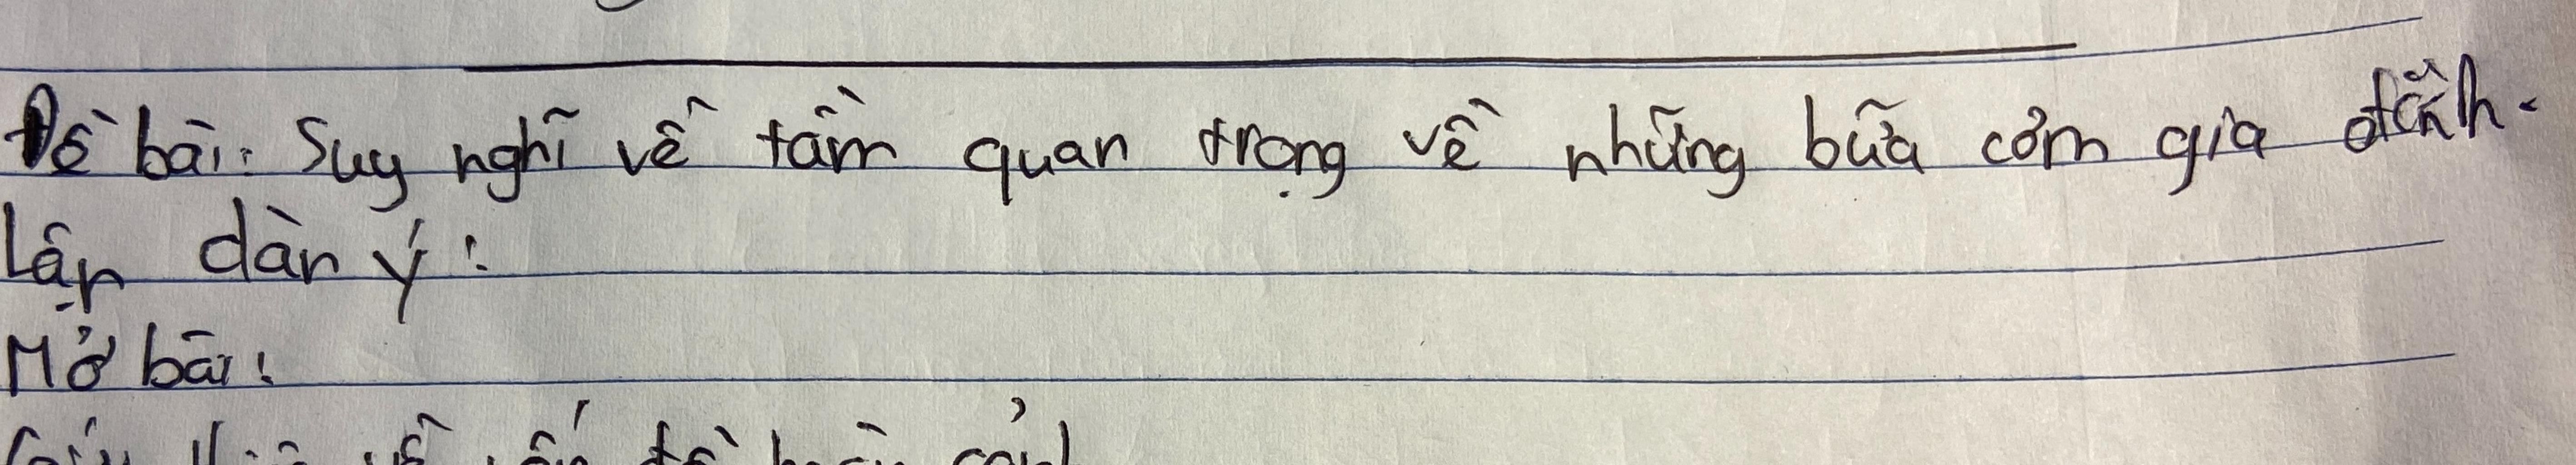 Đề bài: Suy nghĩ về tầm quan trọng về những bữa cơm gia đình.
Lập dàn ý:
Mở bài: